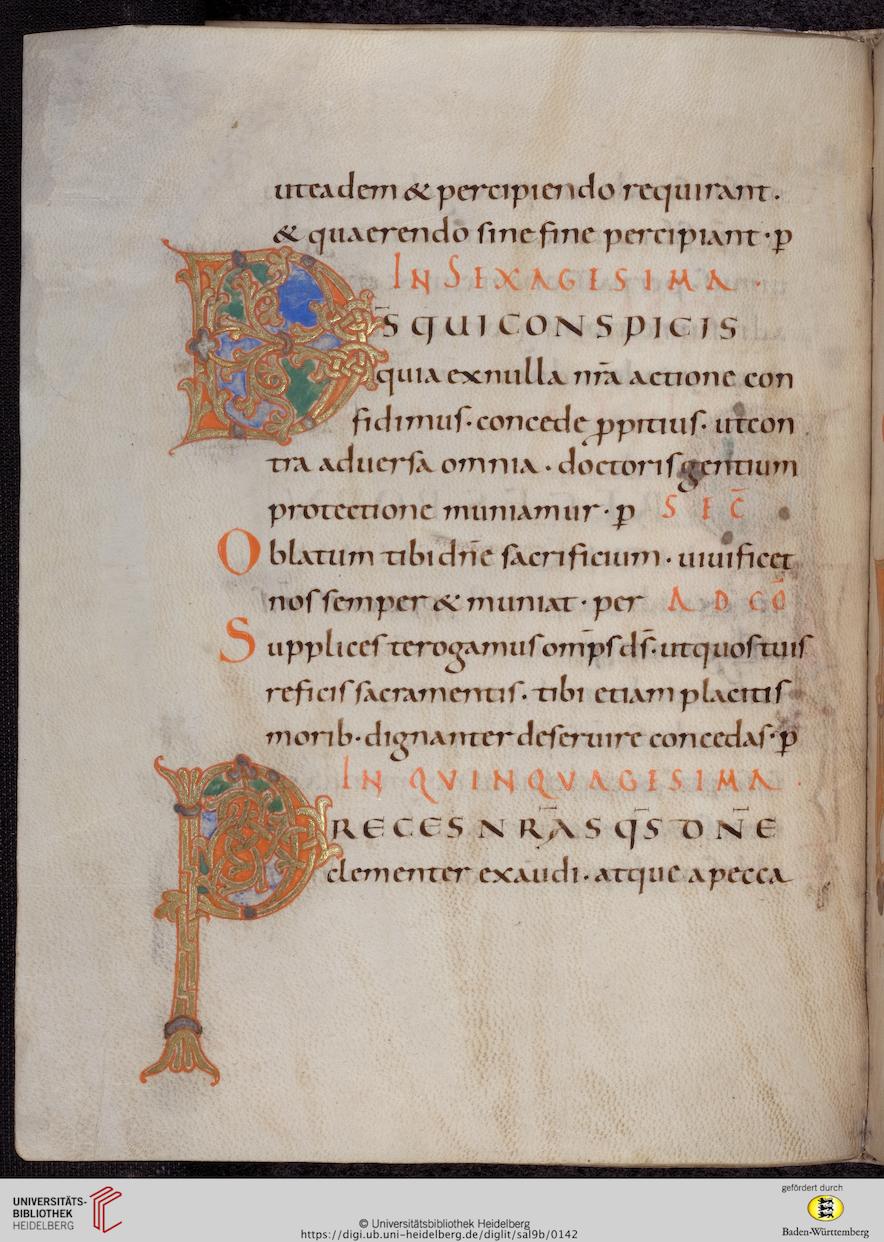 ut eadem & percipiendo requirant.
& quaerendo sine fine percipiant · p̄
IN SEXAGESIMA ·
DS̄ QUI CONSPICIS
quia ex nulla nr̄a actione con
fidimus · concede ꝓpitius · ut con
tra aduersa omnia · doctoris gentium
protectione muniamur · p̄ SEC̄
Oblatum tibi dn̄e sacrificium · uiuificet
nos semper & muniat · per AD CŌ
Supplices te rogamus omp̄s ds̄ · ut quos tuis
reficis sacramentis · tibi etiam placitis
morib· dignanter deseruire concedas · p̄
IN QVINQVAGESIMA ·
PRECES NR̄AS QS̄ DN̄E
clementer exaudi · atque a pecca
UNIVERSITÄTS-
BIBLIOTHEK
HEIDELBERG
© Universitätsbibliothek Heidelberg
https://digi.ub.uni-heidelberg.de/diglit/sal9b/0142
gefördert durch
Baden-Württemberg